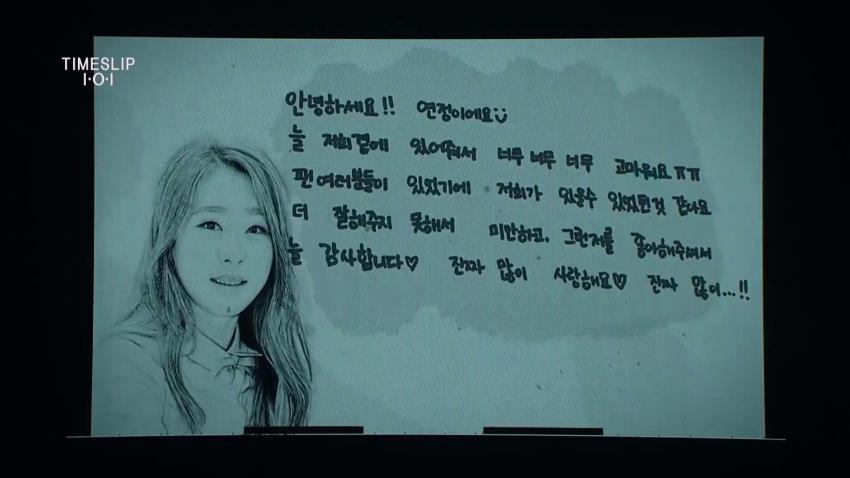 TIMESLIP
I·O·I
안녕하세요!! 연정이에요
늘 저희곁에 있어줘서 너무 너무 너무 고마워요 ㅠㅠ
팬여러분들이 있었기에 저희가 있을수 있었던것 같아요
더 잘해주지 못해서 미안하고, 그런저를 좋아해주셔서
늘 감사합니다♡ 진짜 많이 사랑해요♡ 진짜 많이...!!